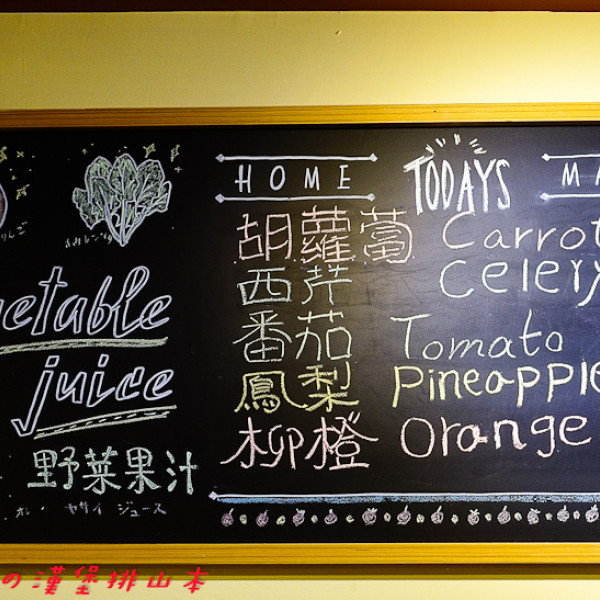 HOME TODAYS MA
りんご ほうれんそう
胡蘿蔔 Carrot
西芹 Celery
getable
番茄 Tomato
鳳梨 Pineapple
juice
柳橙 Orange
野菜果汁
ヤサイ ジュース
の漢堡排山本